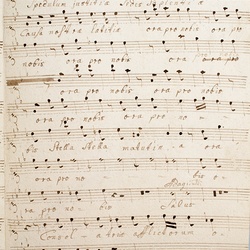 Speculum justitia Sedes Sapientia
Causa nostra latitia ora pro nobis ora pro
nobis ora pro nobis ora pro
ora pro nobis ora pro no
bis Stella Stella matutina ora
ora pro no bis o
ra pro no bis Salus
Consola trix afflictorum o